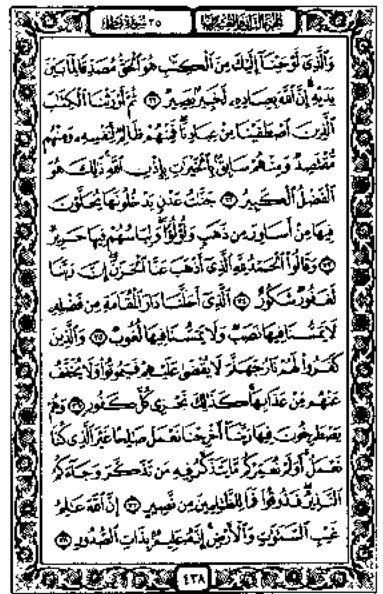 الجزء الثاني والعشرون ٣٥ سورة فاطر
وَٱلَّذِىٓ أَوۡحَيۡنَآ إِلَيۡكَ مِنَ ٱلۡكِتَٰبِ هُوَ ٱلۡحَقُّ مُصَدِّقٗا لِّمَا بَيۡنَ
يَدَيۡهِۗ إِنَّ ٱللَّهَ بِعِبَادِهِۦ لَخَبِيرُۢ بَصِيرٞ ٣١ ثُمَّ أَوۡرَثۡنَا ٱلۡكِتَٰبَ
ٱلَّذِينَ ٱصۡطَفَيۡنَا مِنۡ عِبَادِنَاۖ فَمِنۡهُمۡ ظَالِمٞ لِّنَفۡسِهِۦ وَمِنۡهُم
مُّقۡتَصِدٞ وَمِنۡهُمۡ سَابِقُۢ بِٱلۡخَيۡرَٰتِ بِإِذۡنِ ٱللَّهِۚ ذَٰلِكَ هُوَ
ٱلۡفَضۡلُ ٱلۡكَبِيرُ ٣٢ جَنَّٰتُ عَدۡنٖ يَدۡخُلُونَهَا يُحَلَّوۡنَ
فِيهَا مِنۡ أَسَاوِرَ مِن ذَهَبٖ وَلُؤۡلُؤٗاۖ وَلِبَاسُهُمۡ فِيهَا حَرِيرٞ
٣٣ وَقَالُواْ ٱلۡحَمۡدُ لِلَّهِ ٱلَّذِىٓ أَذۡهَبَ عَنَّا ٱلۡحَزَنَۖ إِنَّ رَبَّنَا
لَغَفُورٞ شَكُورٌ ٣٤ ٱلَّذِىٓ أَحَلَّنَا دَارَ ٱلۡمُقَامَةِ مِن فَضۡلِهِۦ
لَا يَمَسُّنَا فِيهَا نَصَبٞ وَلَا يَمَسُّنَا فِيهَا لُغُوبٞ ٣٥ وَٱلَّذِينَ
كَفَرُواْ لَهُمۡ نَارُ جَهَنَّمَ لَا يُقۡضَىٰ عَلَيۡهِمۡ فَيَمُوتُواْ وَلَا يُخَفَّفُ
عَنۡهُم مِّنۡ عَذَابِهَاۚ كَذَٰلِكَ نَجۡزِى كُلَّ كَفُورٖ ٣٦ وَهُمۡ
يَصۡطَرِخُونَ فِيهَا رَبَّنَآ أَخۡرِجۡنَا نَعۡمَلۡ صَٰلِحًا غَيۡرَ ٱلَّذِى كُنَّا
نَعۡمَلُۚ أَوَلَمۡ نُعَمِّرۡكُم مَّا يَتَذَكَّرُ فِيهِ مَن تَذَكَّرَ وَجَآءَكُمُ
ٱلنَّذِيرُۖ فَذُوقُواْ فَمَا لِلظَّٰلِمِينَ مِن نَّصِيرٍ ٣٧ إِنَّ ٱللَّهَ عَٰلِمُ
غَيۡبِ ٱلسَّمَٰوَٰتِ وَٱلۡأَرۡضِۚ إِنَّهُۥ عَلِيمُۢ بِذَاتِ ٱلصُّدُورِ ٣٨
٤٣٨